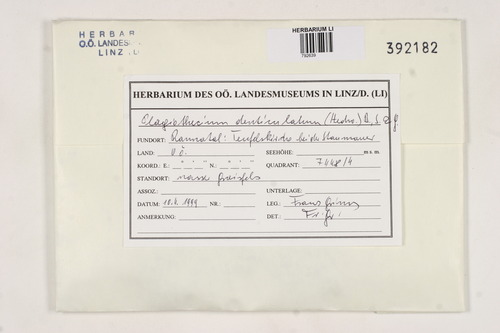 HERBAR
O.Ö. LANDESM
LINZ
HERBARIUM LI
792639
392182
HERBARIUM DES OÖ. LANDESMUSEUMS IN LINZ/D. (LI)
Plagiothecium denticulatum (Hedw.) B. S. & G.
FUNDORT: Rannatal: Teufelskirche bei der Staumauer
LAND: OÖ. SEEHÖHE: m s. m.
KOORD.: E.: ° ' " N.: ° ' " QUADRANT: 7448/4
STANDORT: nasse Gneisfels
ASSOZ.: UNTERLAGE:
DATUM: 18.4.1999 NR.: LEG.: Franz Grims
ANMERKUNG: DET.: